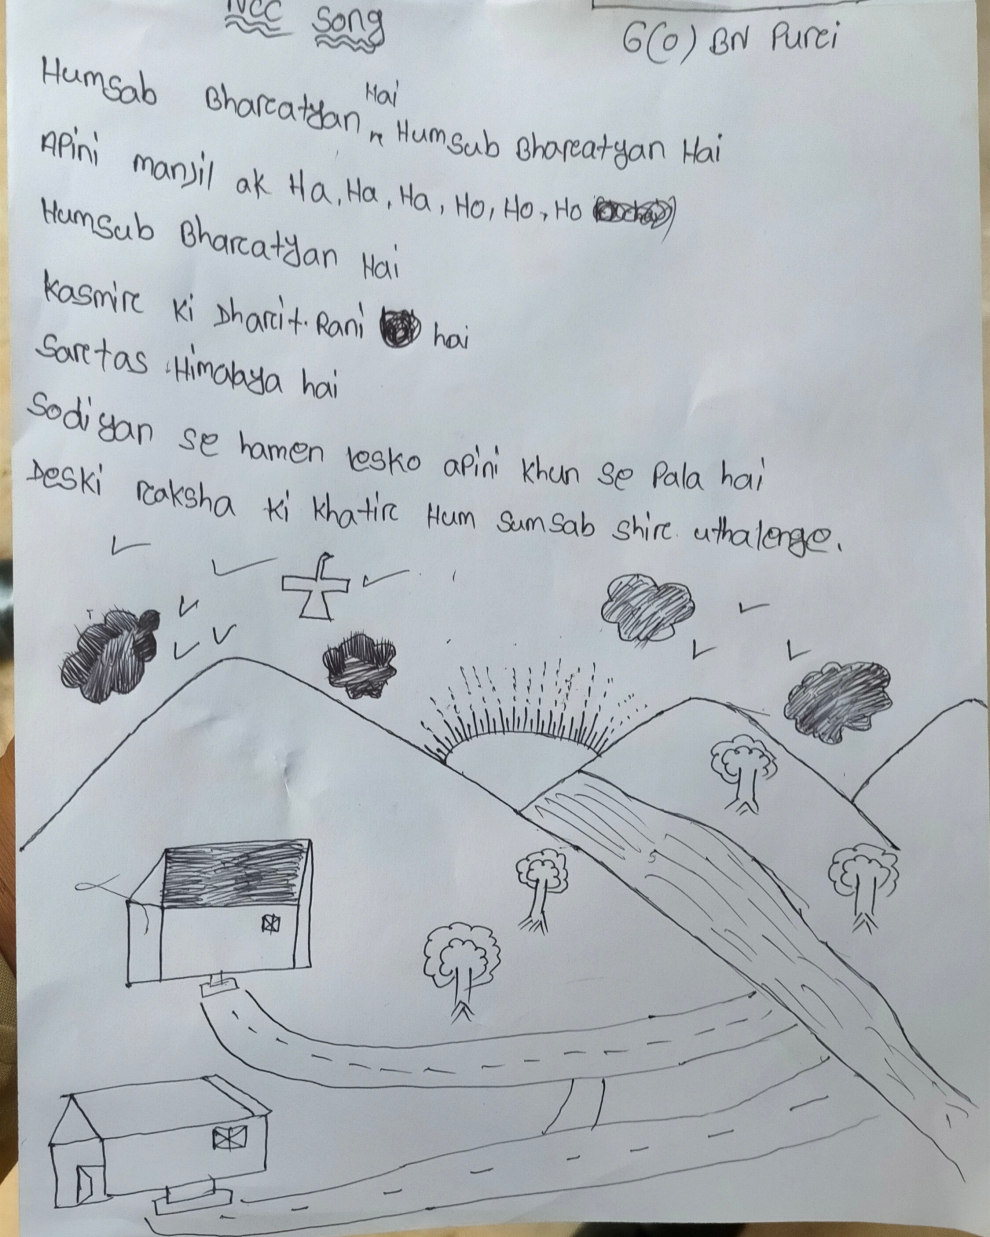 NCC Song
6(O) BN Purci
Humsab Bharcatyan Hai Humsub Bharcatyan Hai
APini manjil ak Ha, Ha, Ha, Ho, Ho, Ho
Humsub Bharcatyan Hai
Kasmirc Ki Dharcit. Rani hai
Sarctas Himalaya hai
Sodiyan se hamen iesko apini khun se Pala hai
Deski rcaksha ki khatirc Hum Sumsab shirc uthalenge.